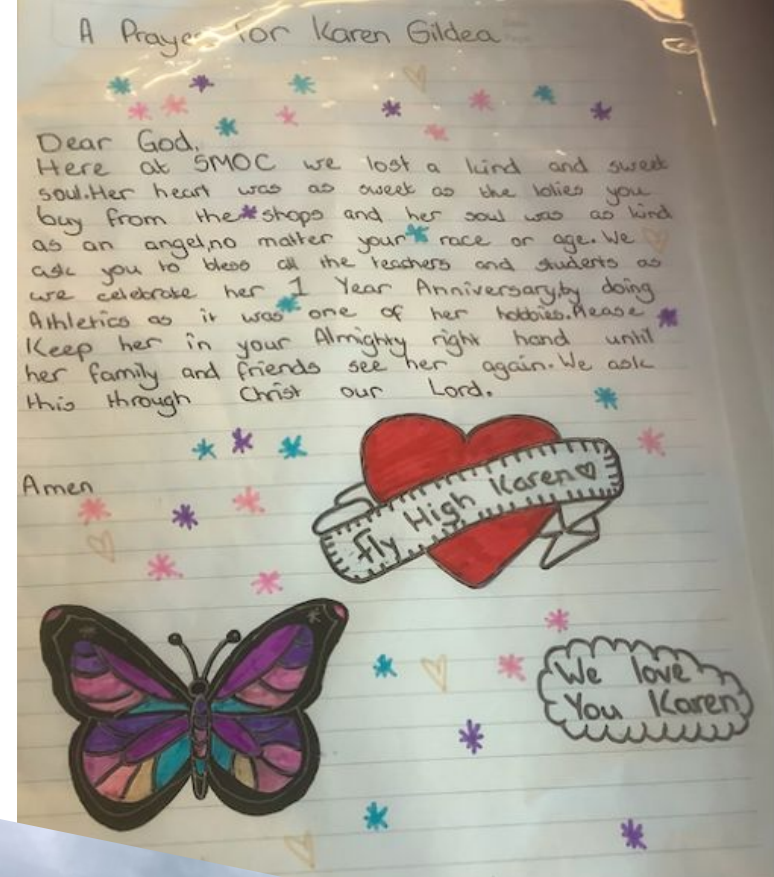 A Prayer for Karen Gildea
Dear God,
Here at SMOC we lost a kind and sweet
soul.Her heart was as sweet as the lolies you
buy from the shops and her soul was as kind
as an angel,no matter your race or age. We
ask you to bless all the teachers and students as
we celebrate her 1 Year Anniversary,by doing
Athletics as it was one of her hobbies.Please
Keep her in your Almighty right hand until
her family and friends see her again. We ask
this through Christ our Lord.
Amen
Fly High Karen
We love
You Karen